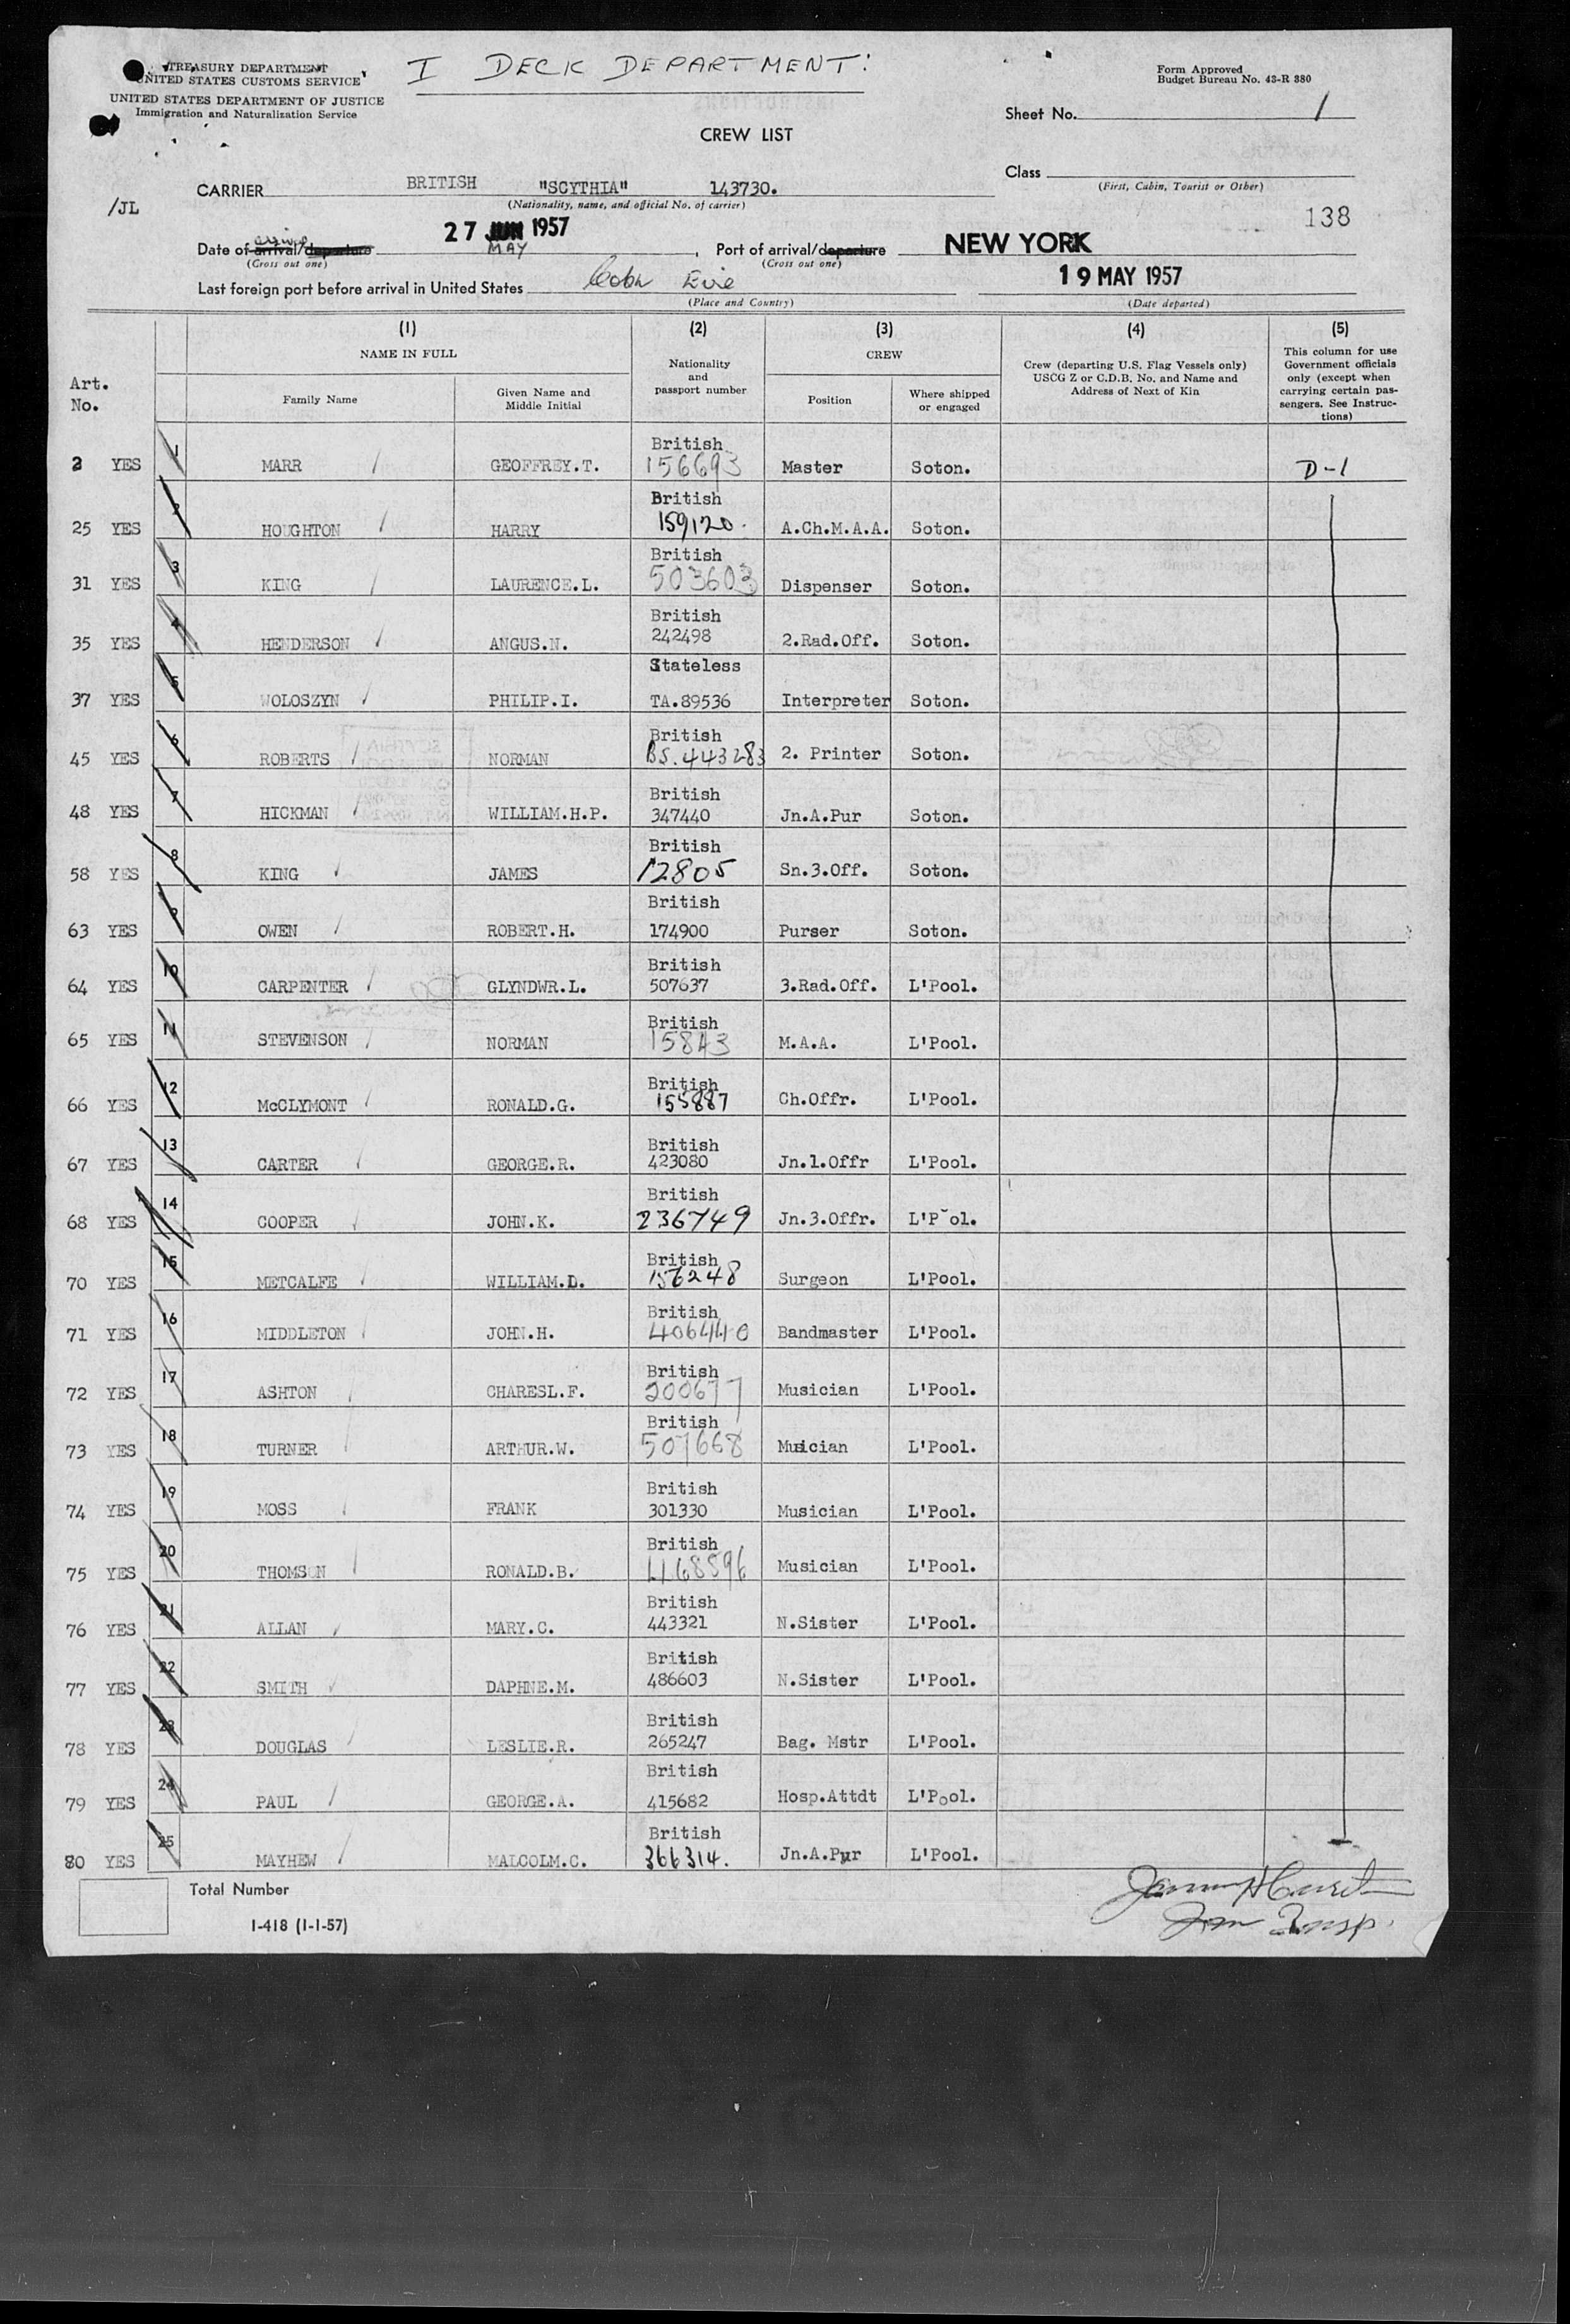 TREASURY DEPARTMENT
UNITED STATES CUSTOMS SERVICE
UNITED STATES DEPARTMENT OF JUSTICE
Immigration and Naturalization Service
I DECK DEPARTMENT:
Form Approved
Budget Bureau No. 43-R 380
Sheet No. 1
CREW LIST
Class
(First, Cabin, Tourist or Other)
CARRIER BRITISH "SCYTHIA" 143730.
(Nationality, name, and official No. of carrier)
/JL
138
Date of arrival/departure 27 JUN 1957 MAY, Port of arrival/departure NEW YORK
(Cross out one) (Cross out one)
Last foreign port before arrival in United States Cobh Eire 19 MAY 1957
(Place and Country) (Date departed)
Art. No. (1) NAME IN FULL Family Name Given Name and Middle Initial (2) Nationality and passport number (3) CREW Position Where shipped or engaged (4) Crew (departing U.S. Flag Vessels only) USCG Z or C.D.B. No. and Name and Address of Next of Kin (5) This column for use Government officials only (except when carrying certain passengers. See Instructions)
2 YES 1 MARR GEOFFREY.T. British 156693 Master Soton. D-1
25 YES 2 HOUGHTON HARRY British 159120. A.Ch.M.A.A. Soton.
31 YES 3 KING LAURENCE.L. British 503603 Dispenser Soton.
35 YES 4 HENDERSON ANGUS.N. British 242498 2.Rad.Off. Soton.
37 YES 5 WOLOSZYN PHILIP.I. Stateless TA.89536 Interpreter Soton.
45 YES 6 ROBERTS NORMAN British BS.443283 2. Printer Soton.
48 YES 7 HICKMAN WILLIAM.H.P. British 347440 Jn.A.Pur Soton.
58 YES 8 KING JAMES British 12805 Sn.3.Off. Soton.
63 YES 9 OWEN ROBERT.H. British 174900 Purser Soton.
64 YES 10 CARPENTER GLYNDWR.L. British 507637 3.Rad.Off. L'Pool.
65 YES 11 STEVENSON NORMAN British 15843 M.A.A. L'Pool.
66 YES 12 McCLYMONT RONALD.G. British 155887 Ch.Offr. L'Pool.
67 YES 13 CARTER GEORGE.R. British 423080 Jn.1.Offr L'Pool.
68 YES 14 COOPER JOHN.K. British 236749 Jn.3.Offr. L'P ol.
70 YES 15 METCALFE WILLIAM.D. British 156248 Surgeon L'Pool.
71 YES 16 MIDDLETON JOHN.H. British 406440 Bandmaster L'Pool.
72 YES 17 ASHTON CHARESL.F. British 200677 Musician L'Pool.
73 YES 18 TURNER ARTHUR.W. British 507668 Muician L'Pool.
74 YES 19 MOSS FRANK British 301330 Musician L'Pool.
75 YES 20 THOMSON RONALD.B. British 468596 Musician L'Pool.
76 YES 21 ALLAN MARY.C. British 443321 N.Sister L'Pool.
77 YES 22 SMITH DAPHNE.M. British 486603 N.Sister L'Pool.
78 YES 23 DOUGLAS LESLIE.R. British 265247 Bag. Mstr L'Pool.
79 YES 24 PAUL GEORGE.A. British 415682 Hosp.Attdt L'Pool.
80 YES 25 MAYHEW MALCOLM.C. British 366314. Jn.A.Pur L'Pool.
Total Number
I-418 (1-1-57)
Insp.